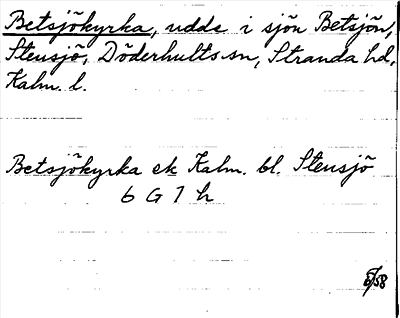 Betsjökyrka, udde i sjön Betsjön,
Stensjö, Döderhults sn, Stranda hd,
Kalm. l.
Betsjökyrka ek Kalm. bl. Stensjö
6 G 7 h
5/58